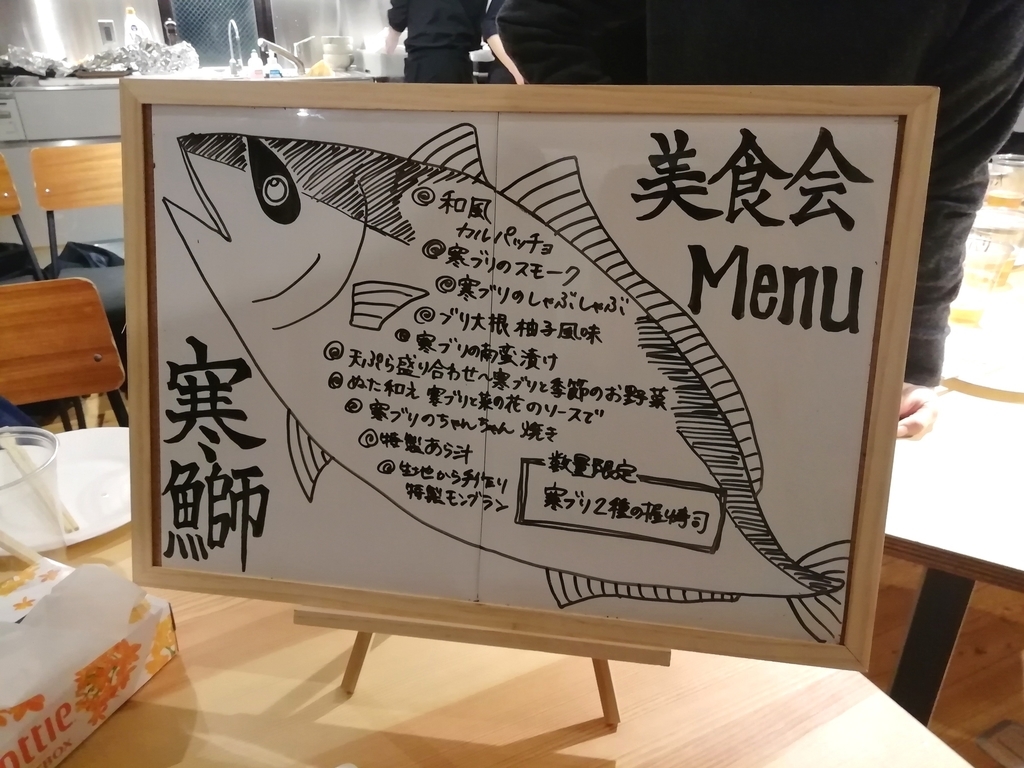 美食会
Menu
寒鰤
◎和風
カルパッチョ
◎寒ブリのスモーク
◎寒ブリのしゃぶしゃぶ
◎ブリ大根 柚子風味
◎寒ブリの南蛮漬け
◎天ぷら盛り合わせ〜寒ブリと季節のお野菜
◎ぬた和え 寒ブリと菜の花のソースで
◎寒ブリのちゃんちゃん焼き
◎特製あら汁
◎生地から手作り
特製モンブラン
数量限定
寒ブリ2種の握り寿司
ottie
BOX